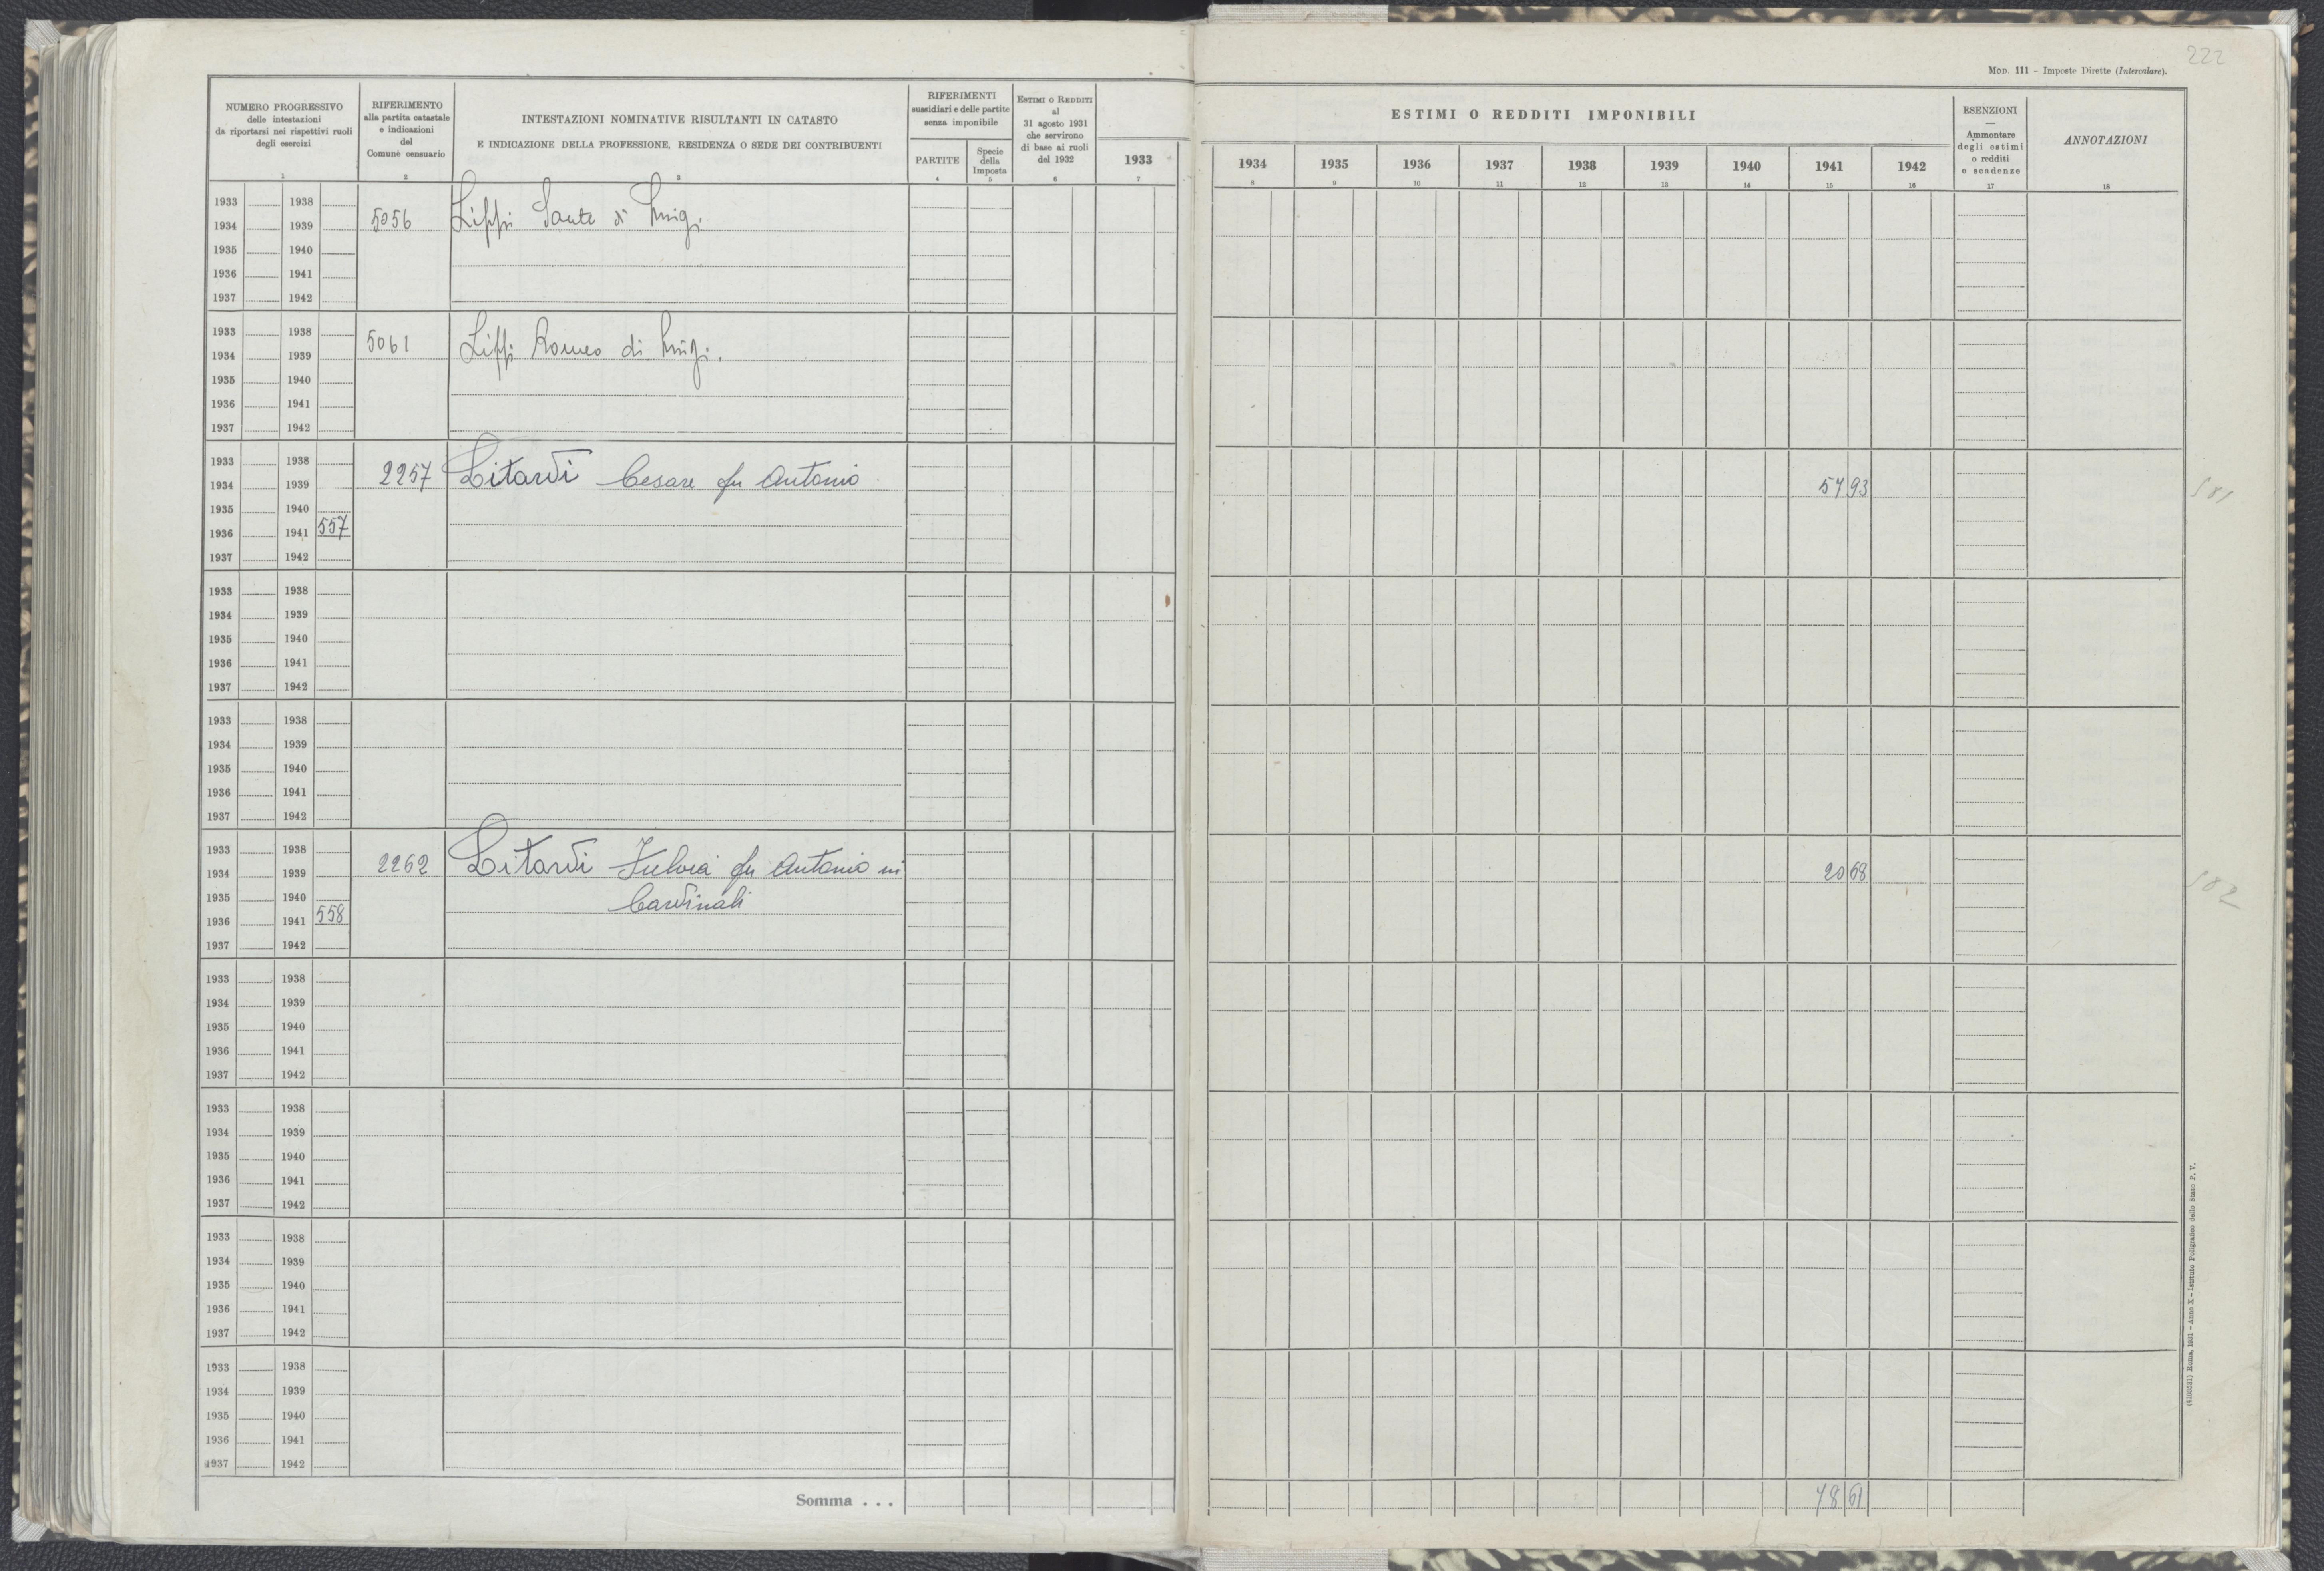 222
MOD. 111 - Imposte Dirette (Intercalare).
NUMERO PROGRESSIVO
delle intestazioni
da riportarsi nei rispettivi ruoli
degli esercizi
1
RIFERIMENTO
alla partita catastale
e indicazioni
del
Comune censuario
2
INTESTAZIONI NOMINATIVE RISULTANTI IN CATASTO
E INDICAZIONE DELLA PROFESSIONE, RESIDENZA O SEDE DEI CONTRIBUENTI
3
RIFERIMENTI
sussidiari e delle partite
senza imponibile
PARTITE
4
Specie
della
Imposta
5
ESTIMI O REDDITI
al
31 agosto 1931
che servirono
di base ai ruoli
del 1932
6
1933
7
ESTIMI O REDDITI IMPONIBILI
1934 1935 1936 1937 1938 1939 1940 1941 1942
8 9 10 11 12 13 14 15 16
ESENZIONI
—
Ammontare
degli estimi
o redditi
e scadenze
17
ANNOTAZIONI
18
1933 1938
1934 1939 5056 Lippi Sante di Luigi
1935 1940
1936 1941
1937 1942
1933 1938
1934 1939 5061 Lippi Romeo di Luigi.
1935 1940
1936 1941
1937 1942
1933 1938
1934 1939 2257 Litardi Cesare fu Antonio 57 93 581
1935 1940
1936 1941 557
1937 1942
1933 1938
1934 1939
1935 1940
1936 1941
1937 1942
1933 1938
1934 1939
1935 1940
1936 1941
1937 1942
1933 1938
1934 1939 2262 Litardi Fulvia fu Antonio in 20 68 582
1935 1940 Cardinali
1936 1941 558
1937 1942
1933 1938
1934 1939
1935 1940
1936 1941
1937 1942
1933 1938
1934 1939
1935 1940
1936 1941
1937 1942
1933 1938
1934 1939
1935 1940
1936 1941
1937 1942
1933 1938
1934 1939
1935 1940
1936 1941
1937 1942
Somma . . . 78 61
(4105531) Roma, 1932 - Anno X - Istituto Poligrafico dello Stato P. V.